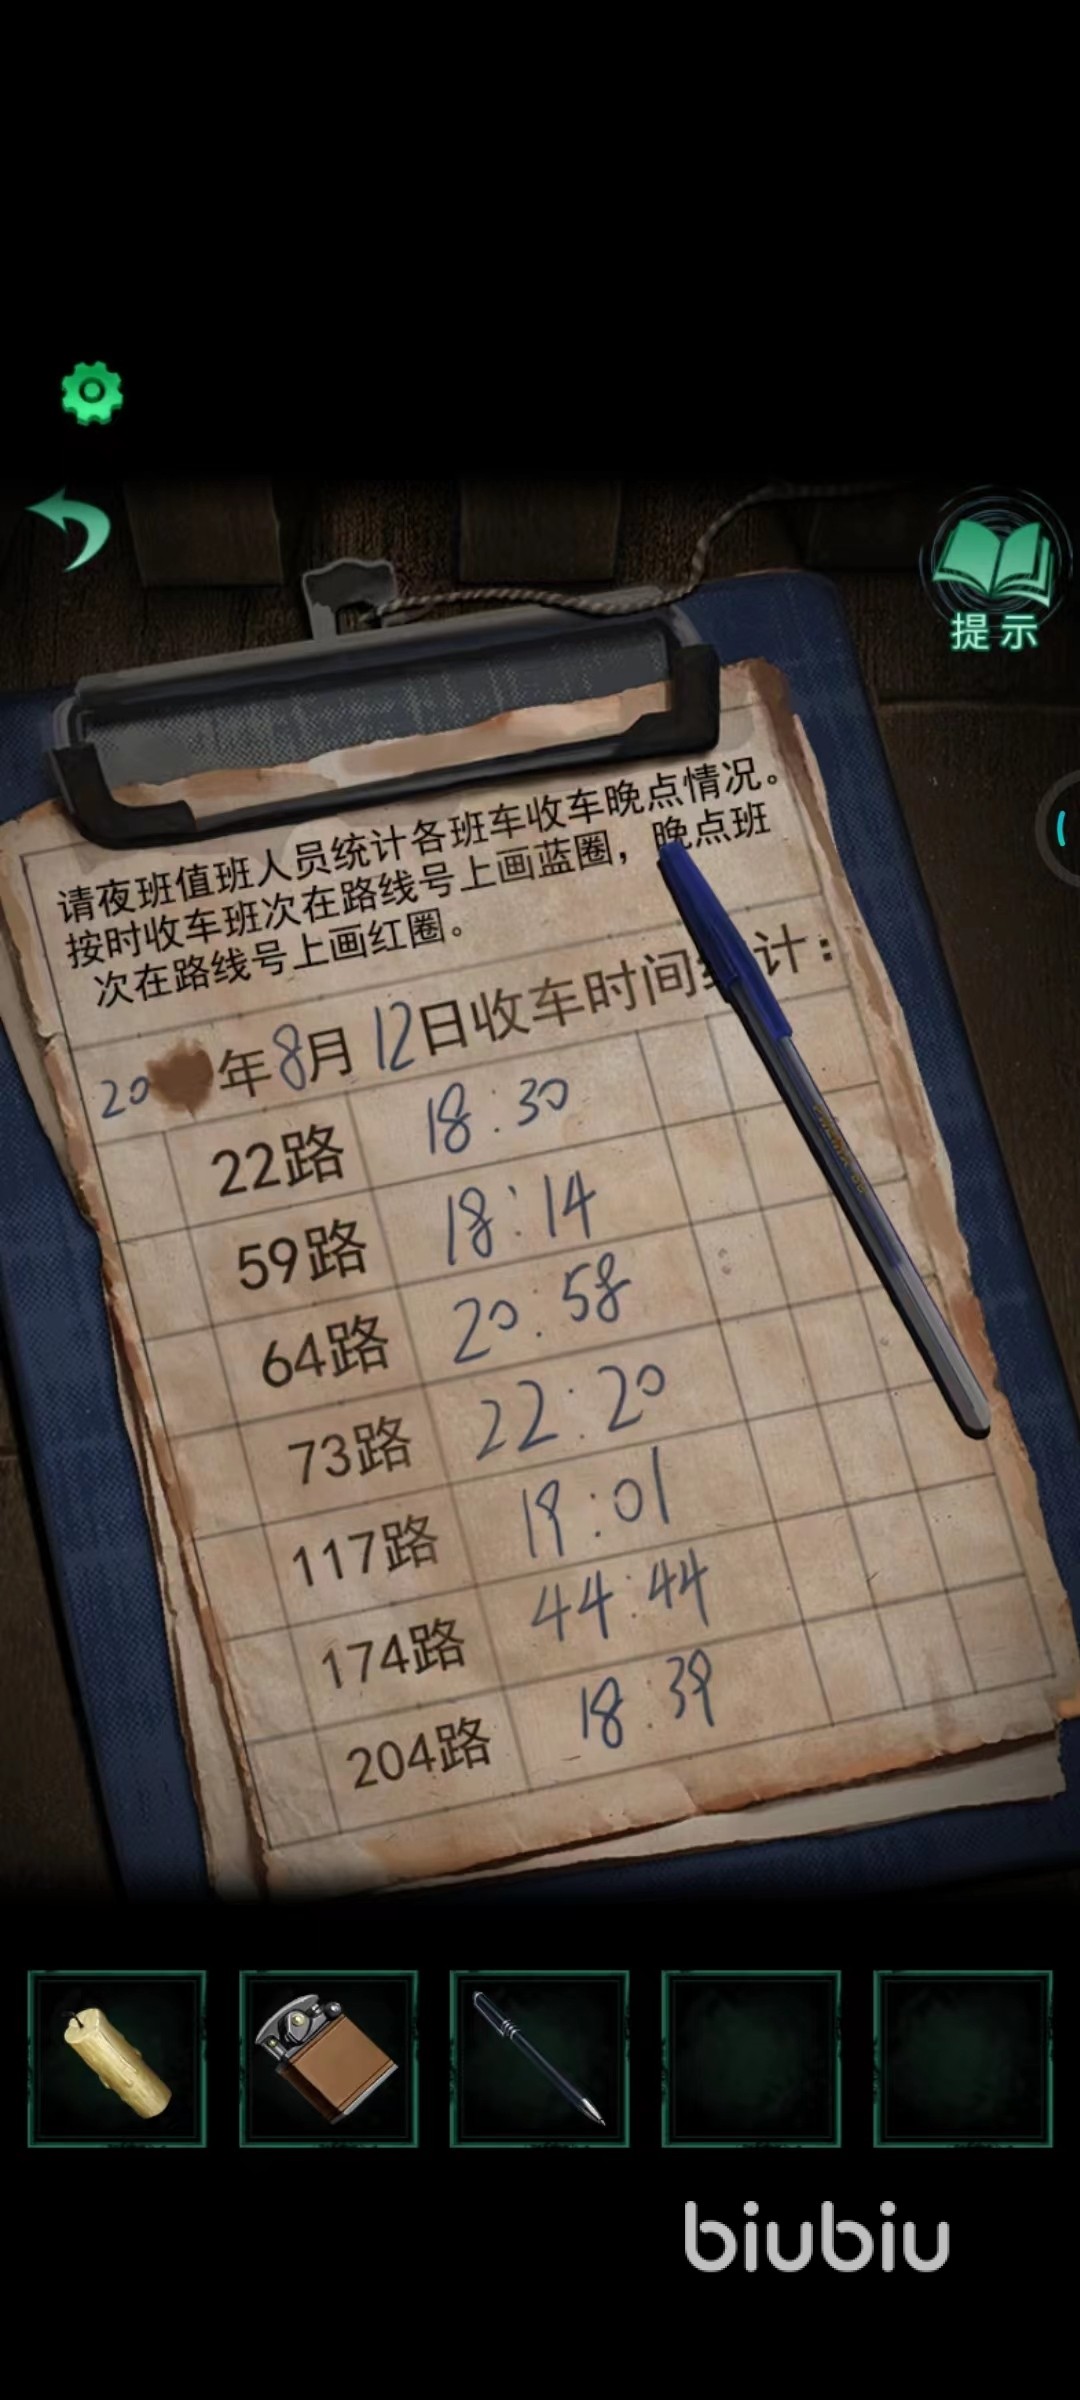 提示
请夜班值班人员统计各班车收车晚点情况。
按时收车班次在路线号上画蓝圈，晚点班
次在路线号上画红圈。
20 年8月12日收车时间 计：
22路 18:30
59路 18:14
64路 20:58
73路 22:20
117路 19:01
174路 44:44
204路 18:39
biubiu